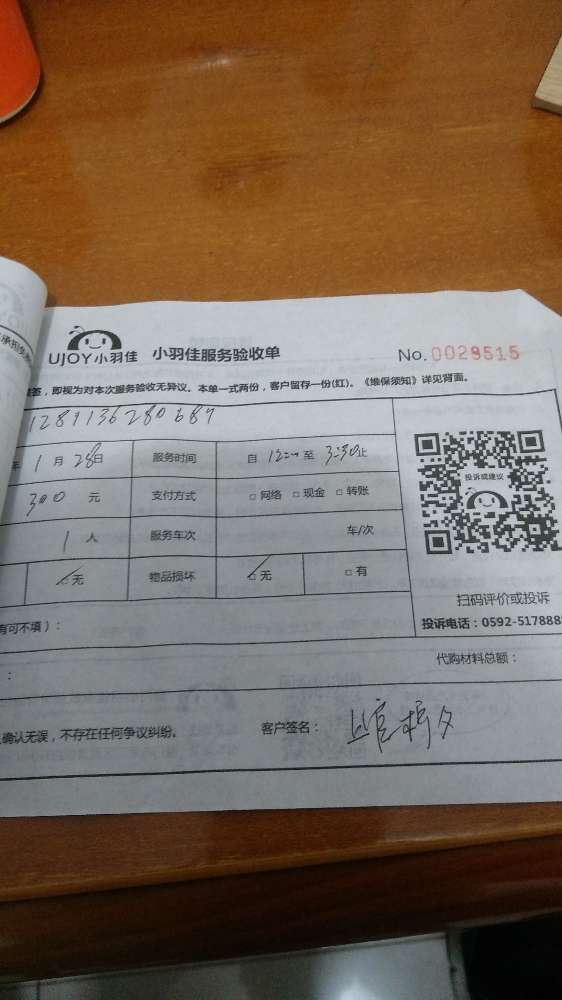 UJOY小羽佳 小羽佳服务验收单 No.0029515
即视为对本次服务验收无异议。本单一式两份，客户留存一份(红)。《维保须知》详见背面。
128913628068
年 1 月 28 日 服务时间 自 12:00 至 3:30 止
300 元 支付方式 □ 网络 □ 现金 □ 转账
1 人 服务车次 车/次
□无 物品损坏 □无 □ 有
投诉或建议
扫码评价或投诉
有可不填）：
投诉电话：0592-5178888
代购材料总额：
：
确认无误，不存在任何争议纠纷。 客户签名： 上官